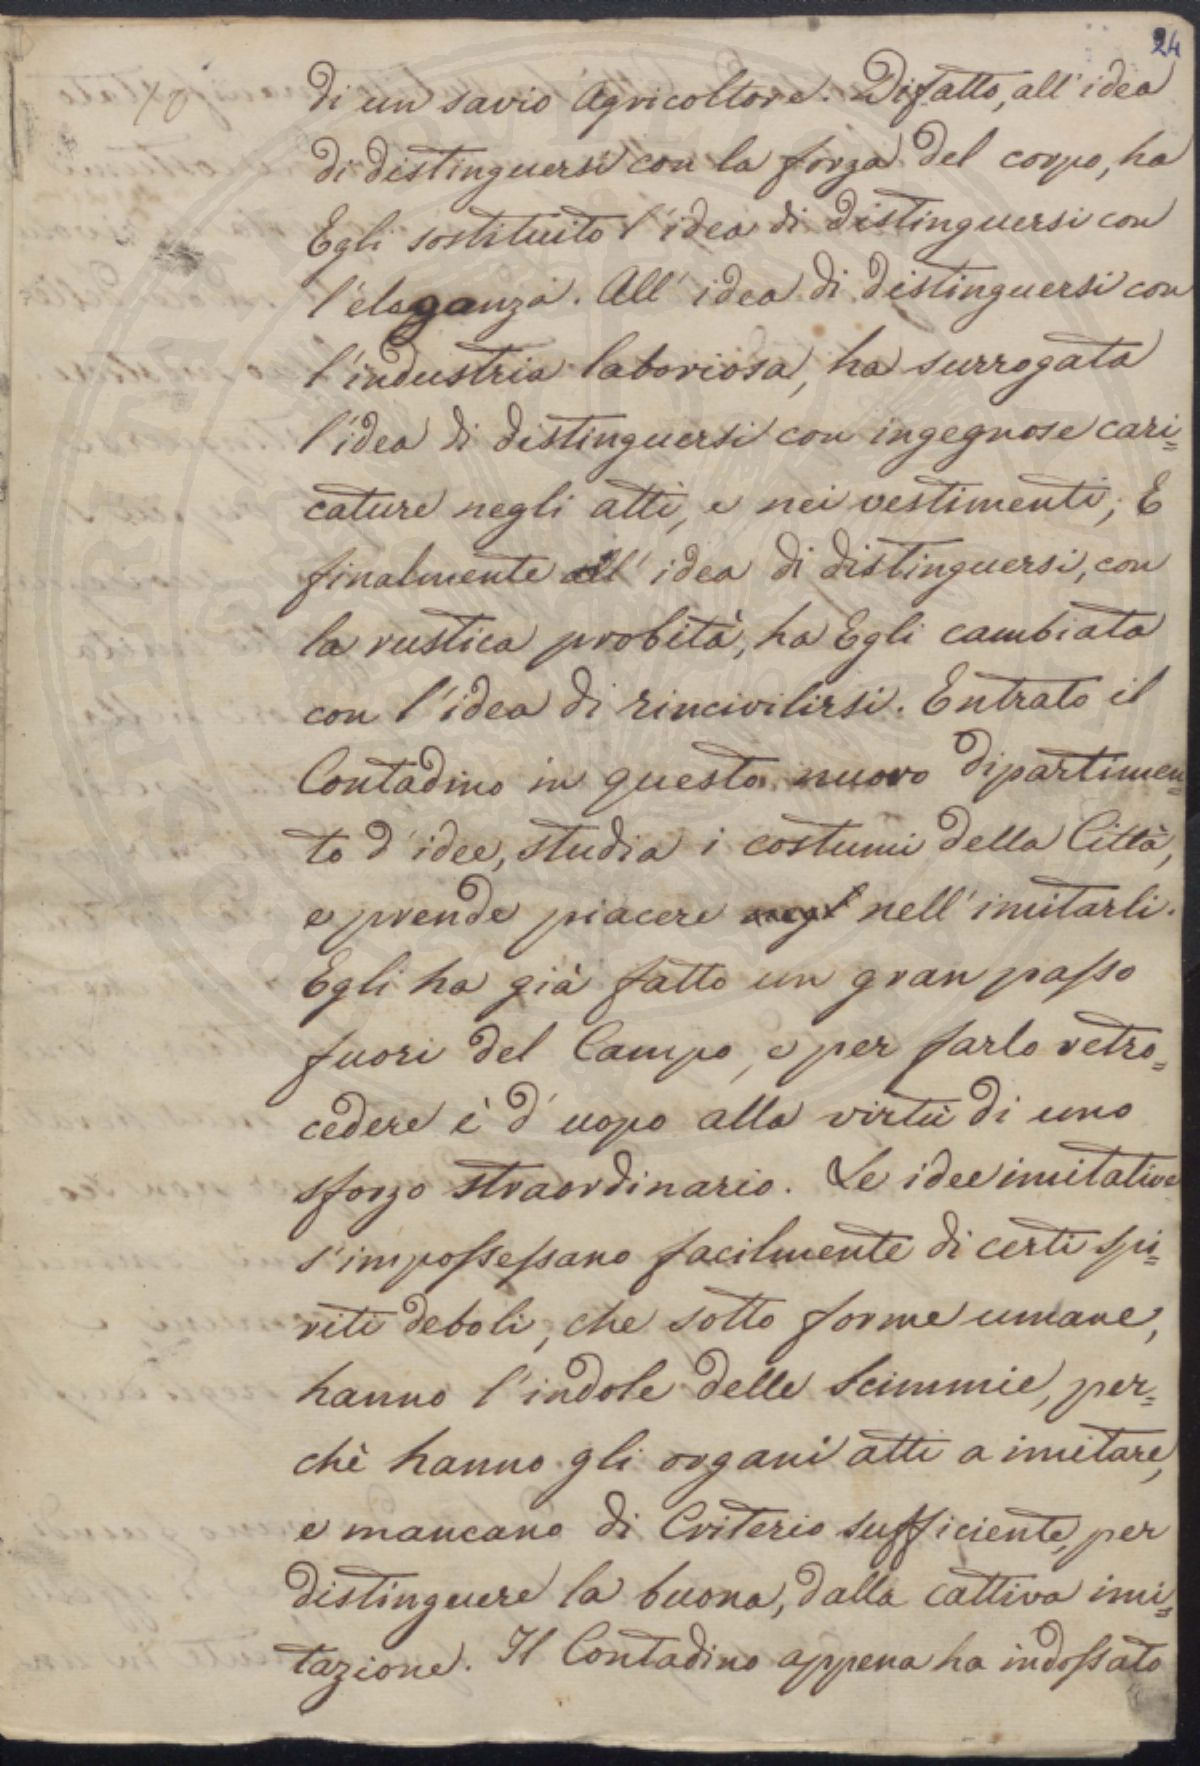 24
di un savio Agricoltore. Difatto, all' idea
di distinguersi con la forza del corpo, ha
Egli sostituito l'idea di distinguersi con
l'eleganza. All' idea di distinguersi con
l'industria laboriosa, ha surrogata
l'idea di distinguersi con ingegnose cari=
cature negli atti, e nei vestimenti; E
finalmente all' idea di distinguersi, con
la rustica probità, ha Egli cambiata
con l'idea di rincivilirsi. Entrato il
Contadino in questo nuovo dipartimen=
to d'idee, studia i costumi della Città,
e prende piacere nell'imitarli.
Egli ha già fatto un gran passo
fuori del Campo, e per farlo retro=
cedere è d'uopo alla virtù di uno
sforzo straordinario. Le idee imitative
s'impossessano facilmente di certi spi=
riti deboli, che sotto forme umane,
hanno l'indole delle Scimmie, per=
chè hanno gli organi atti a imitare,
e mancano di Criterio sufficiente, per
distinguere la buona, dalla cattiva imi=
tazione. Il Contadino appena ha indossato